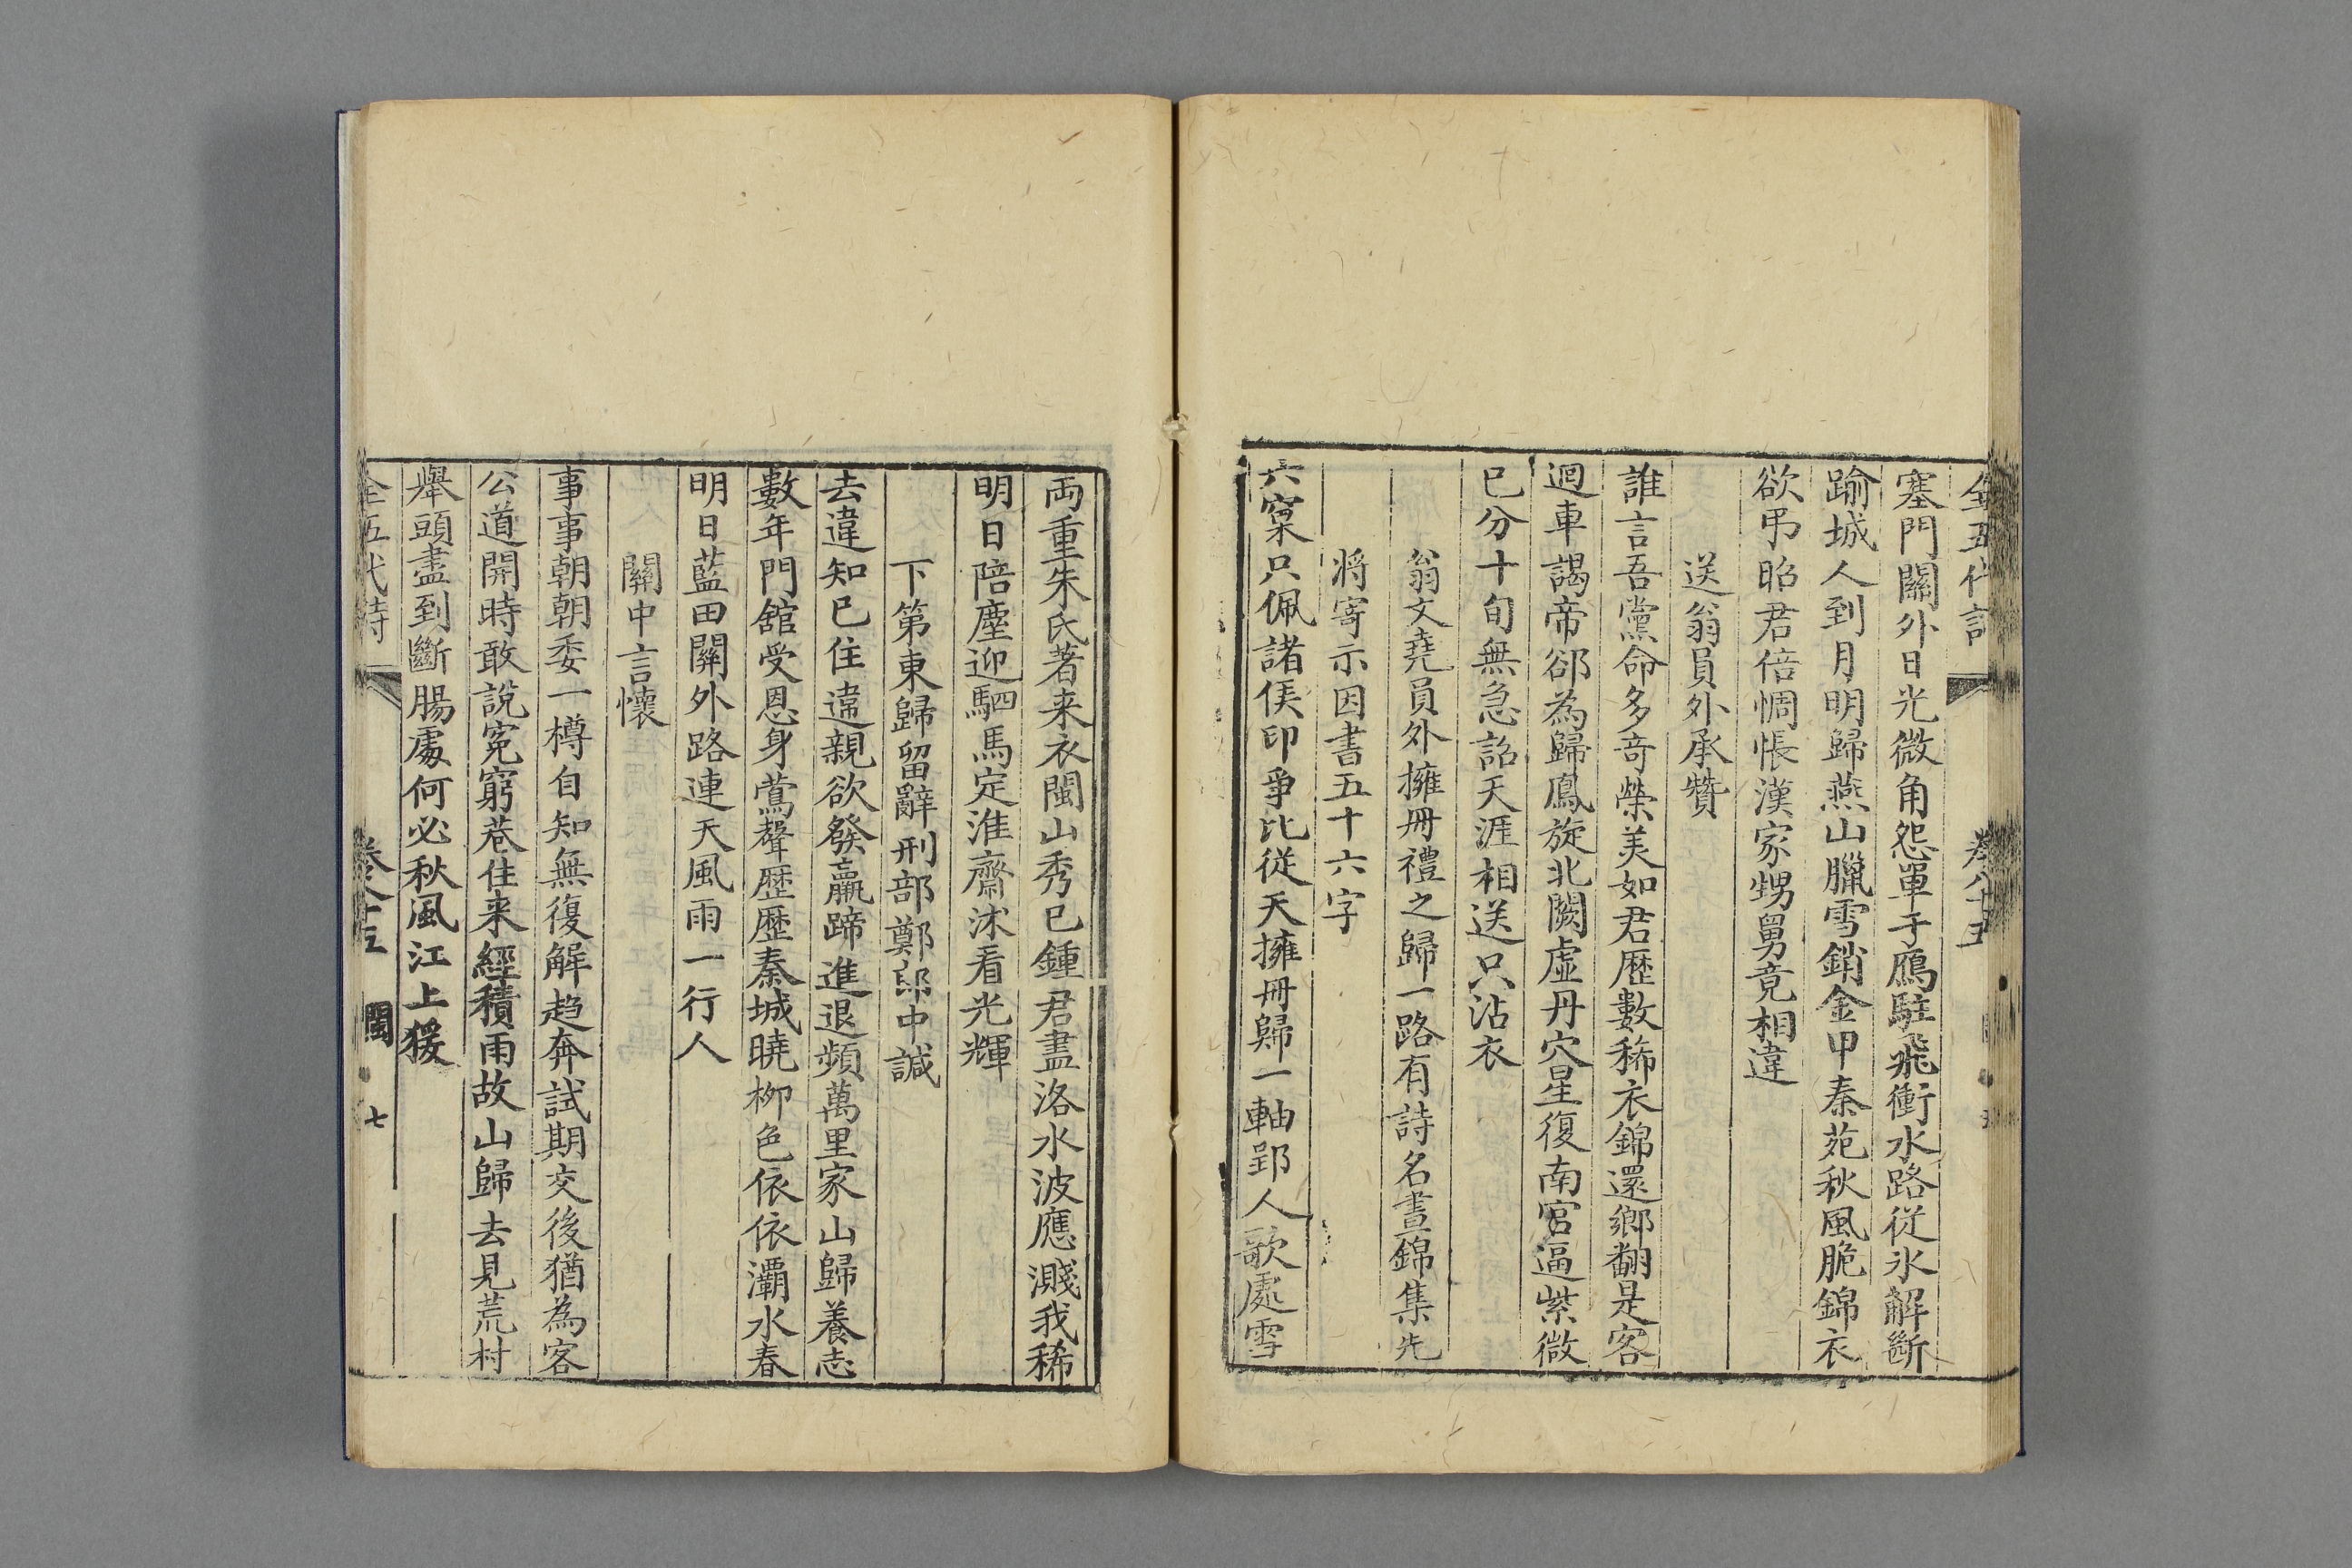 全五代詩 卷八十五
塞門關外日光微角怨單于鴈駐飛衝水路從氷解斷
踰城人到月明歸燕山臘雪銷金甲秦苑秋風脆錦衣
欲弔昭君倍惆悵漢家甥舅竟相違
送翁員外承贊
誰言吾黨命多竒榮美如君歷數稀衣錦還鄉翻是客
迴車謁帝郤為歸鳳旋北闕虛丹穴星復南宮逼紫微
已分十旬無急詔天涯相送只沾衣
翁文堯員外擁冊禮之歸一路有詩名晝錦集先
將寄示因書五十六字
六窠只佩諸侯印爭比從天擁冊歸一軸郢人歌處雪
兩重朱氏著来衣閩山秀已鍾君盡洛水波應濺我稀
明日陪塵迎駟馬定淮齋沭看光輝
下第東歸留辭刑部鄭郎中諴
去違知已住違親欲發羸蹄進退頻萬里家山歸養志
數年門舘受恩身鶯聲歷歷秦城曉柳色依依灞水春
明日藍田關外路連天風雨一行人
關中言懷
事事朝朝委一樽自知無復解趋奔試期交後猶為客
公道開時敢說寃窮巷住来經積雨故山歸去見荒村
舉頭盡到斷腸處何必秋風江上猨
全五代詩 卷八十五 閩 七